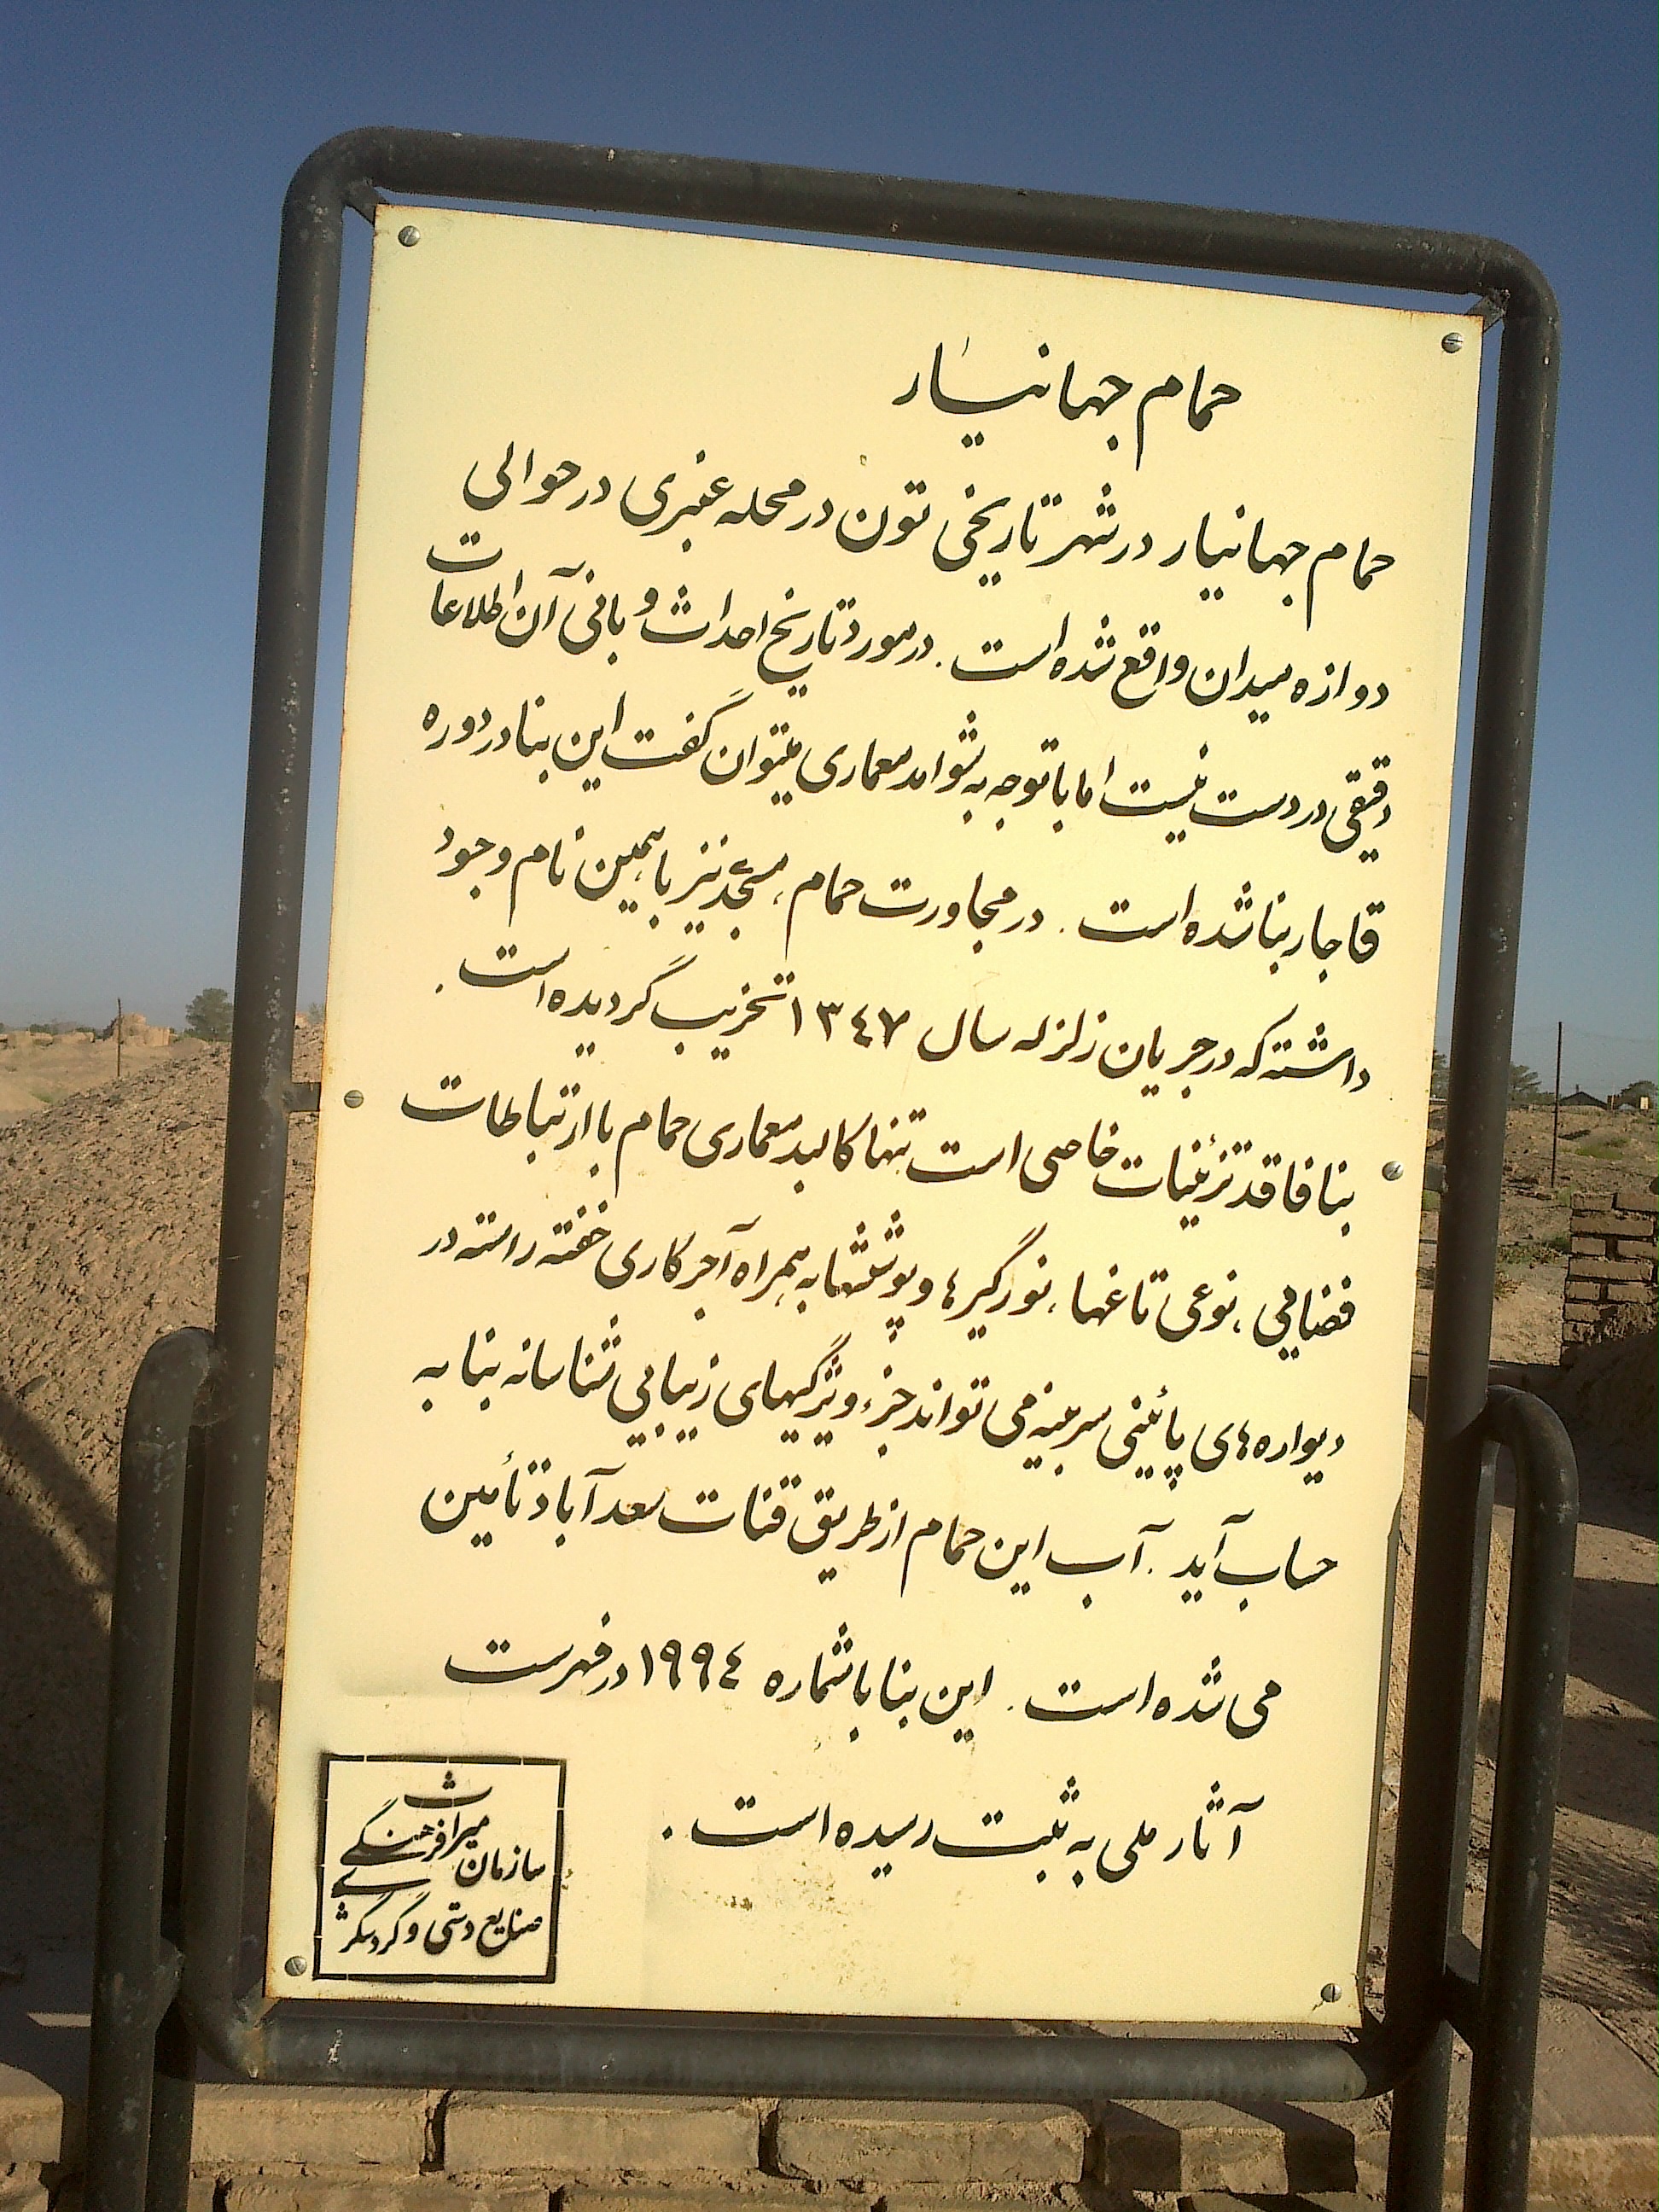 حمام جهانیار
حمام جهانیار در شهر تاریخی تون در محله عنبری در حوالی
دوازه میدان واقع شده است. در مورد تاریخ احداث و بانی آن اطلاعات
دقیقی در دست نیست اما با توجه به شواهد معماری میتوان گفت این بنا در دوره
قاجار بنا شده است. در مجاورت حمام، مسجدی نیز با همین نام وجود
داشته که در جریان زلزله سال ۱۳٤۷ تخریب گردیده است.
بنا فاقد تزئینات خاصی است تنها کالبد معماری حمام با ارتباطات
فضایی، نوعی تاغها، نورگیرها و پوششها به همراه آجرکاری خفته راسته در
دیواره های پائینی سربینه می تواند جزء ویژگیهای زیبایی شناسانه بنا به
حساب آید. آب این حمام از طریق قنات سعدآباد تأمین
می شده است. این بنا با شماره ۱۹۹٤ در فهرست
آثار ملی به ثبت رسیده است.
سازمان میراث فرهنگی
صنایع دستی و گردشگری